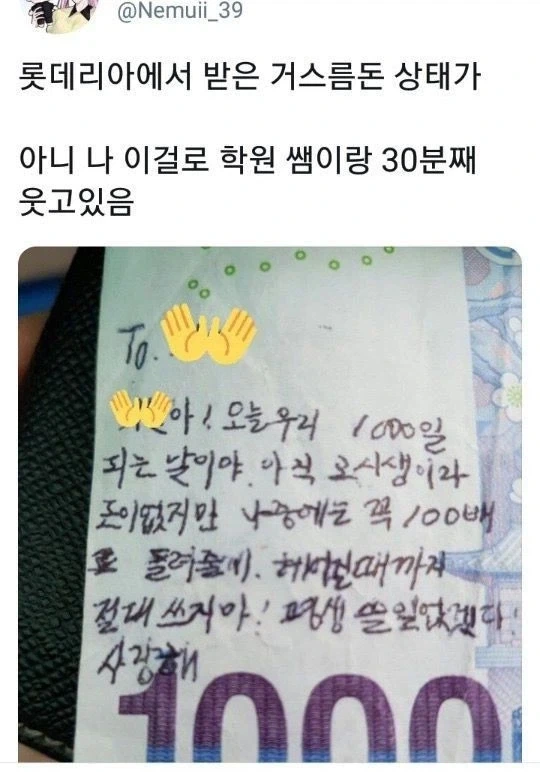 @Nemuii_39
롯데리아에서 받은 거스름돈 상태가
아니 나 이걸로 학원 쌤이랑 30분째
웃고있음
To.
아! 오늘 우리 1000일
되는 날이야. 아직 고시생이라
돈이없지만 나중에는 꼭 100배
로 돌려줄게. 헤어질때까지
절대 쓰지마! 평생 쓸 일없겠다
사랑해
1000